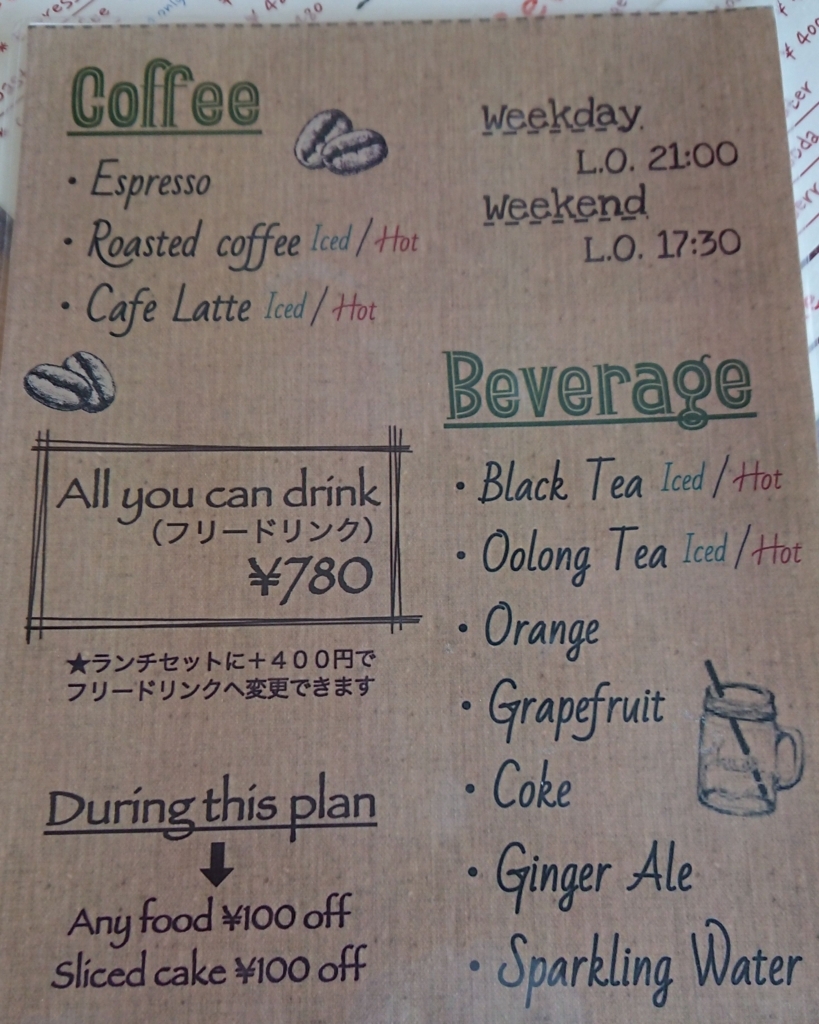 Coffee
・Espresso
・Roasted coffee Iced / Hot
・Cafe Latte Iced / Hot
All you can drink
（フリードリンク）
¥780
★ランチセットに＋４００円で
フリードリンクへ変更できます
During this plan
Any food ¥100 off
Sliced cake ¥100 off
Weekday
L.O. 21:00
Weekend
L.O. 17:30
Beverage
・Black Tea Iced / Hot
・Oolong Tea Iced / Hot
・Orange
・Grapefruit
・Coke
・Ginger Ale
・Sparkling Water